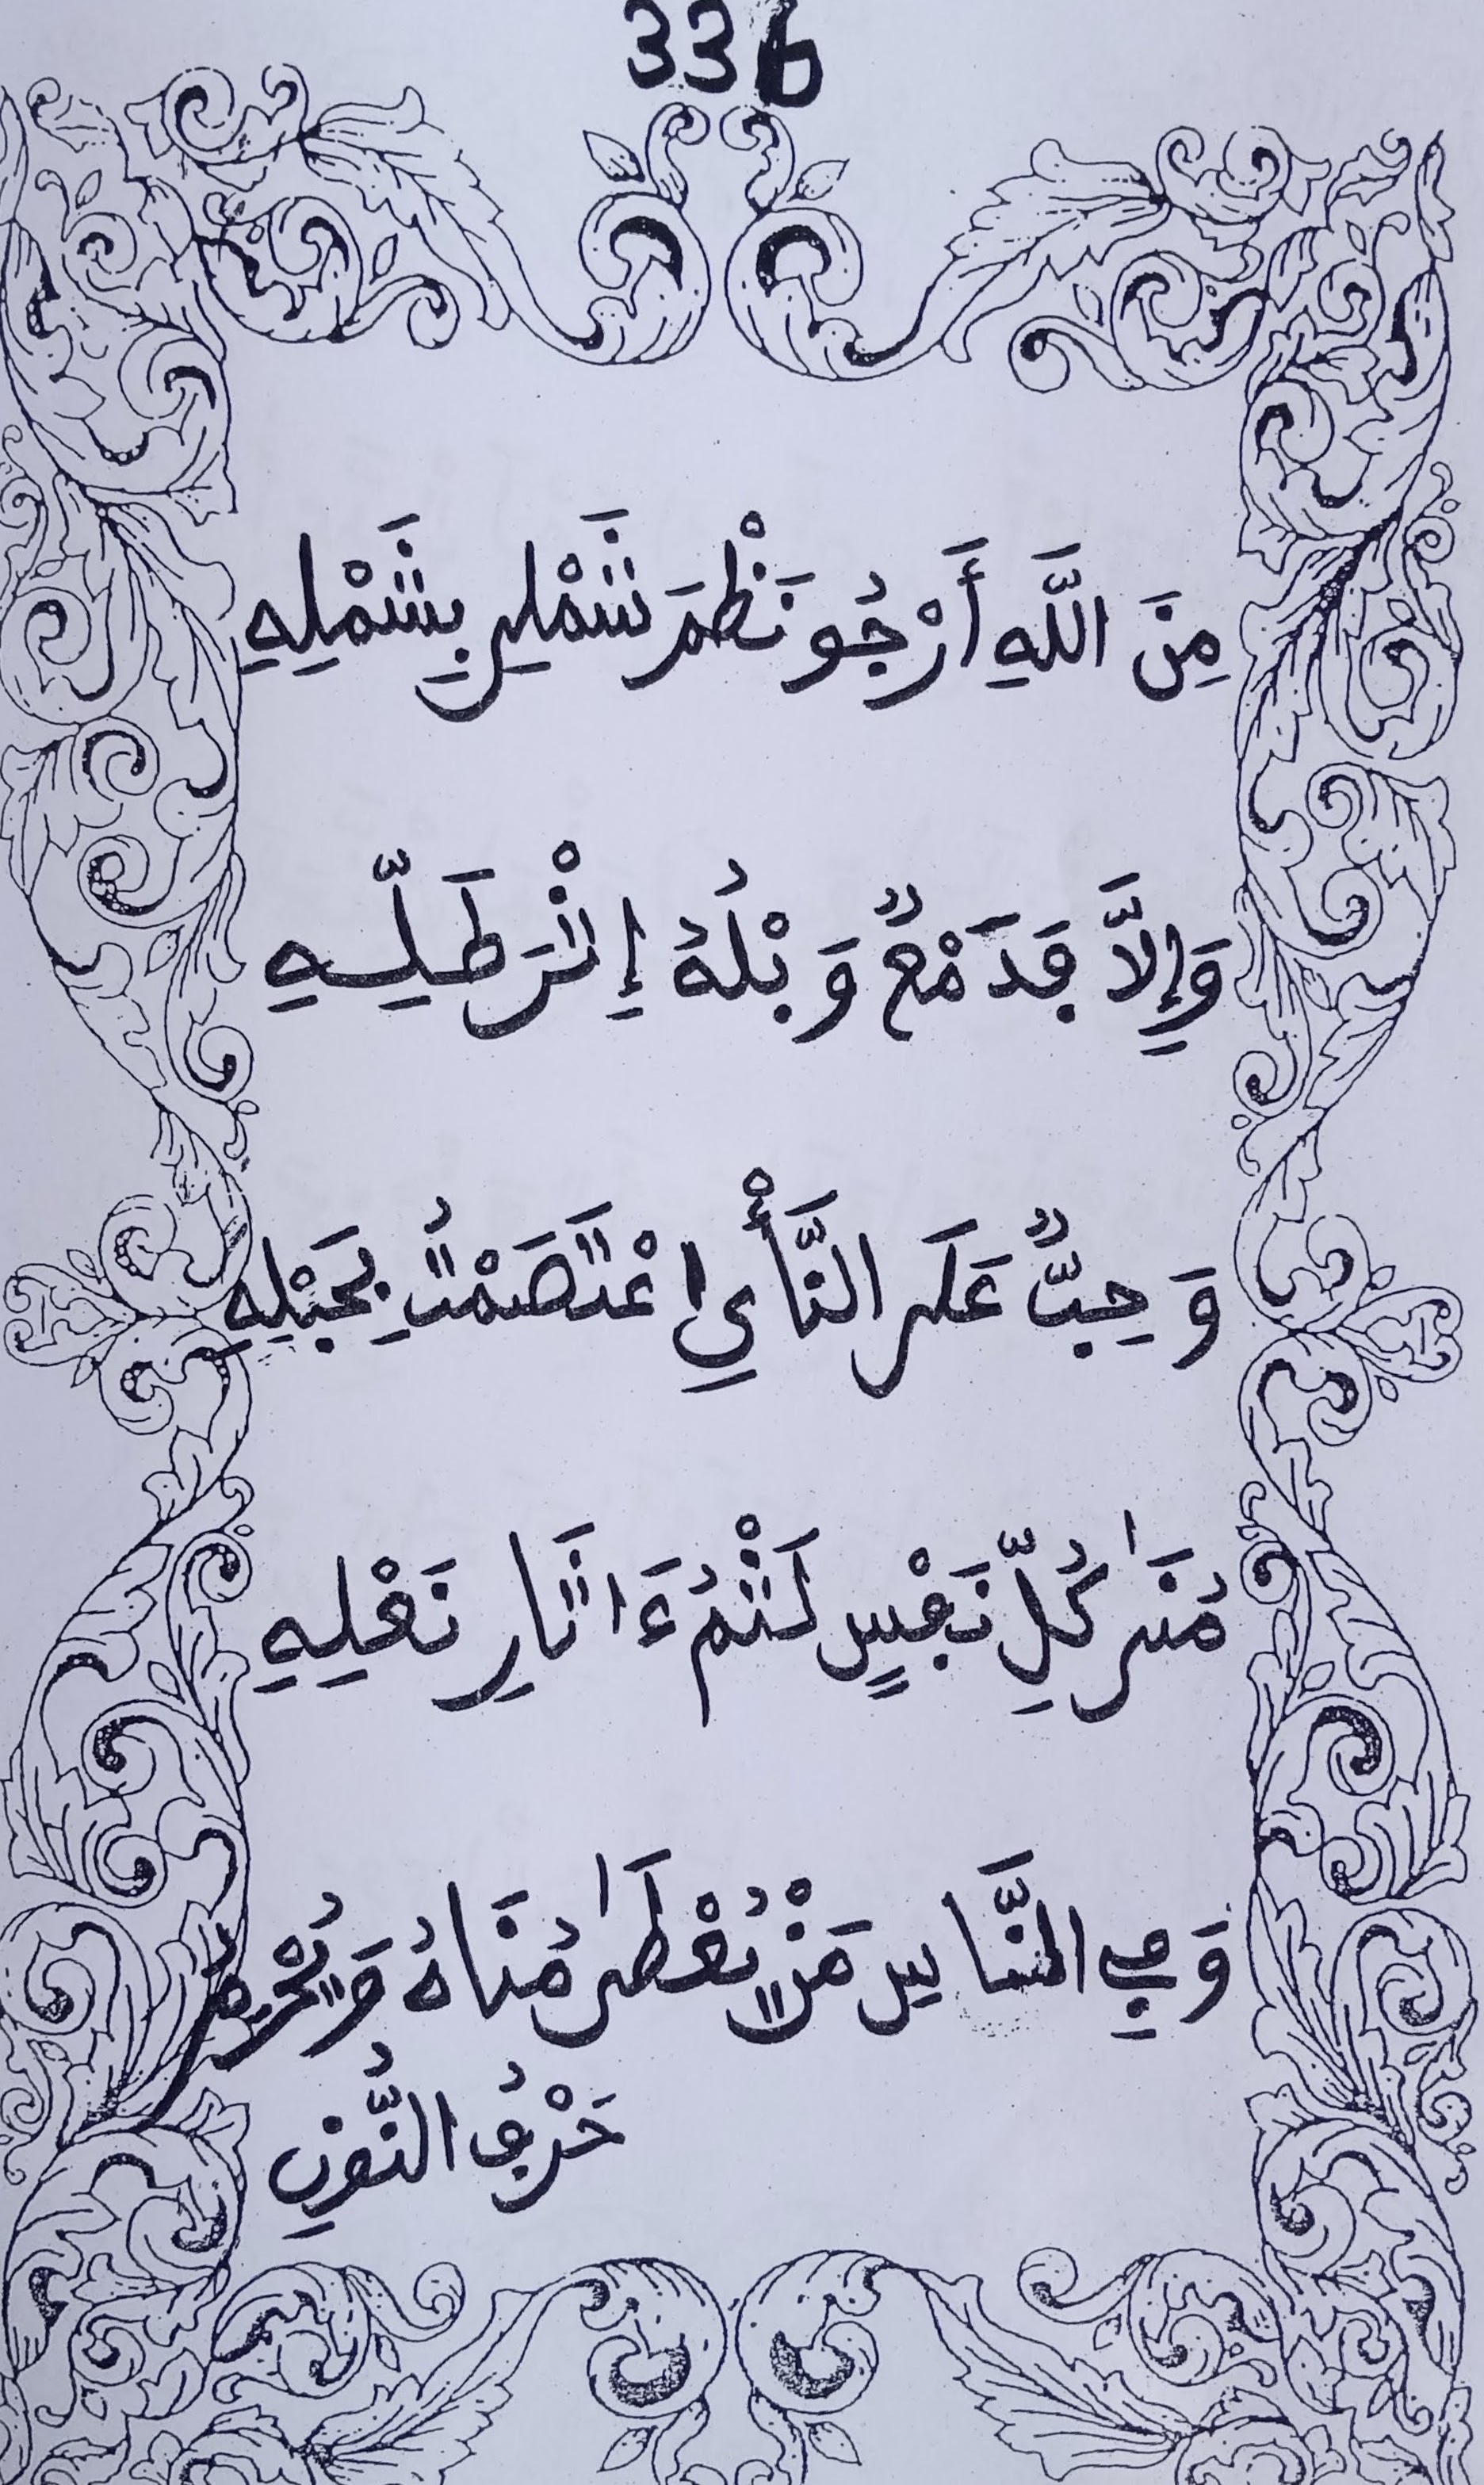 336
مِنَ اللَّهِ أَرْجُو نَظْمَ شَمْلِي بِشَمْلِهِ
وَإِلاَّ فَدَمْعٌ وَبْلُهُ إِثْرَ طَلِّهِ
وَحِبٌّ عَلَى النَّأْيِ اعْتَصَمْتُ بِحَبْلِهِ
مُنَىٰ كُلِّ نَفْسٍ لَثْمُ ءَاثَارِ نَعْلِهِ
وَفِي النَّاسِ مَنْ يُعْطَىٰ مُنَاهُ وَيُحْرَمُ
حَرْفُ النُّونِ